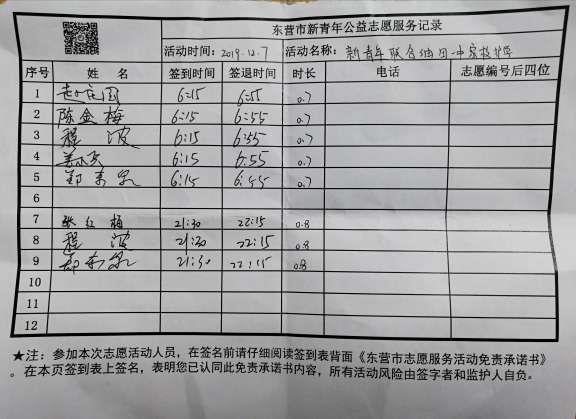 东营市新青年公益志愿服务记录
活动时间: 2019.12.7 活动名称: 新青年联合油田一中家校
序号 姓 名 签到时间 签退时间 时长 电话 志愿编号后四位
1 6:15 6:55 0.7
2 陈金梅 6:15 6:55 0.7
3 程波 6:15 6:55 0.7
4 6:15 6:55 0.7
5 6:15 6:55 0.7
6
7 张红梅 21:30 22:15 0.8
8 程波 21:30 22:15 0.8
9 21:30 22:15 0.8
10
11
12
★注: 参加本次志愿活动人员，在签名前请仔细阅读签到表背面《东营市志愿服务活动免责承诺书》
。在本页签到表上签名，表明您已认同此免责承诺书内容，所有活动风险由签字者和监护人自负。